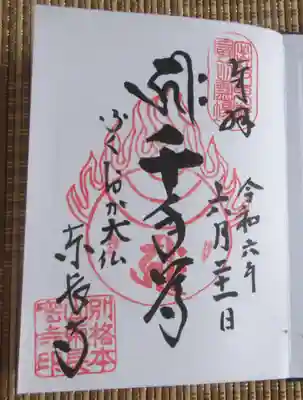 奉拝
令和六年
六月二十一日
千手尊
ふくおか大仏
東長寺
別格本
山東長
密寺印